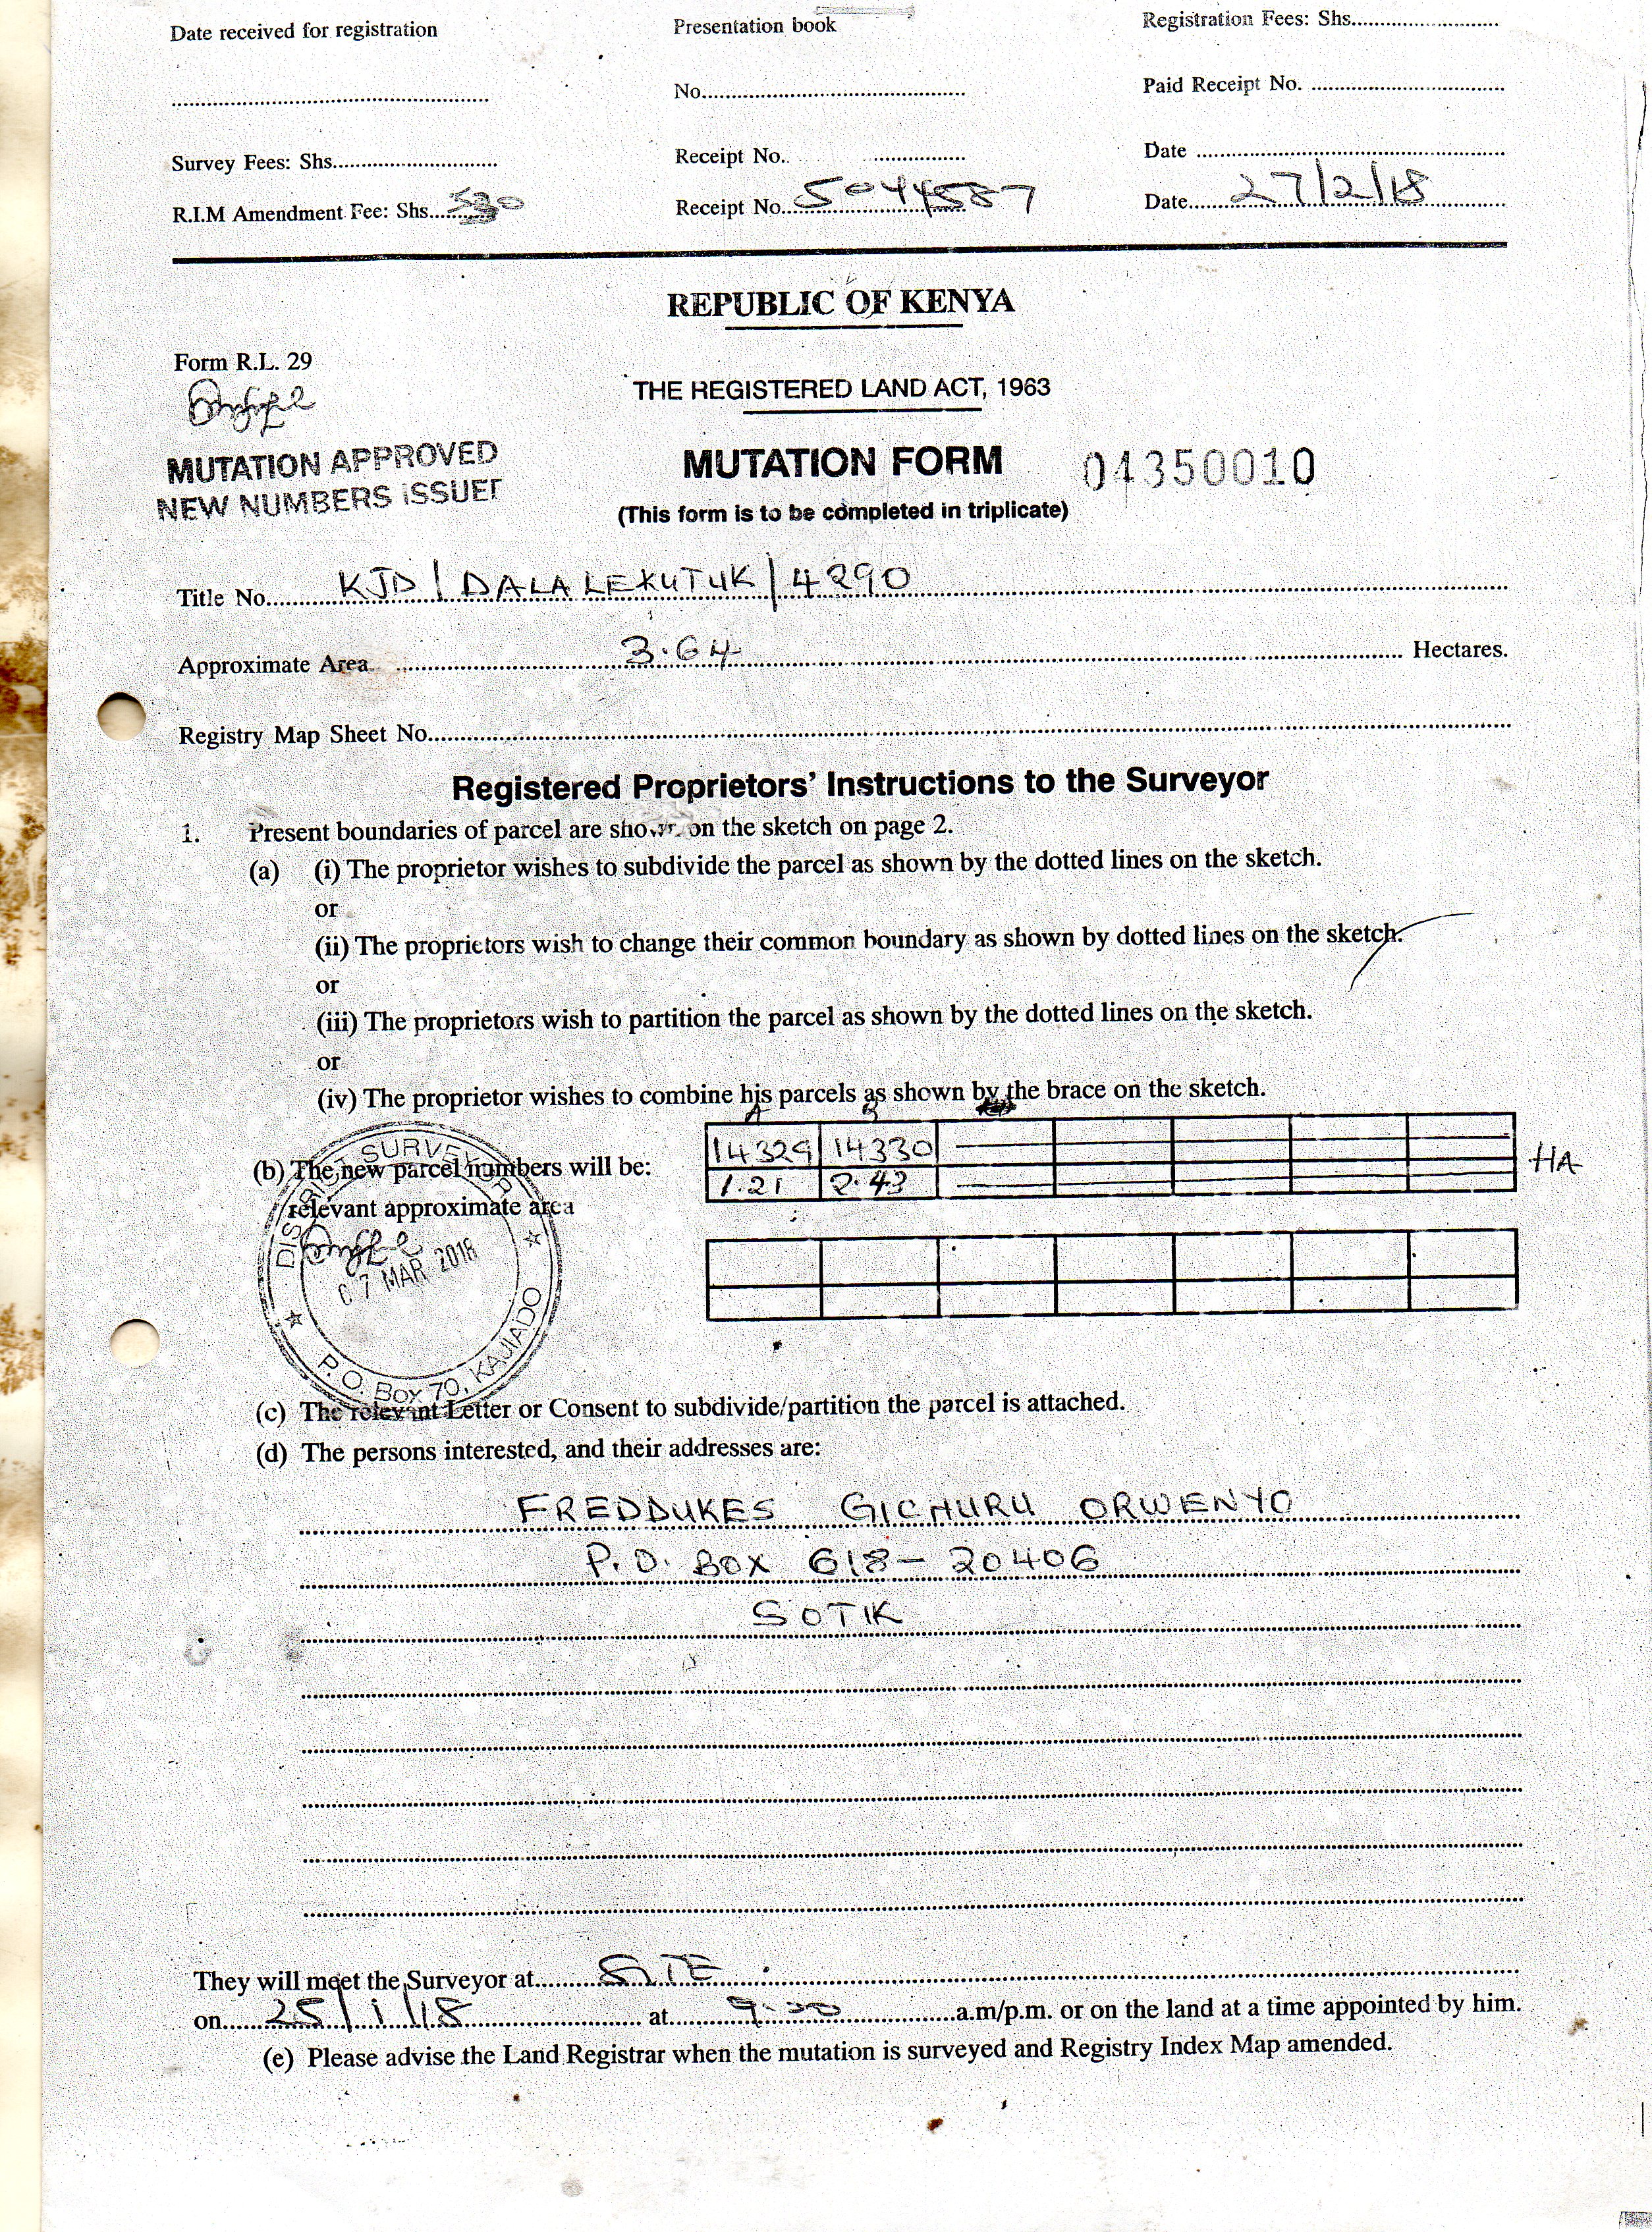 Date received for registration Presentation book Registration Fees: Shs
No. Paid Receipt No.
Survey Fees: Shs. Receipt No. Date
R.I.M Amendment Fee: Shs. 530 Receipt No. 5044587 Date 27/2/18
REPUBLIC OF KENYA
Form R.L. 29
THE REGISTERED LAND ACT, 1963
MUTATION APPROVED
NEW NUMBERS ISSUED
MUTATION FORM 04350010
(This form is to be completed in triplicate)
Title No. KJD/DALALEKUTUK/4290
Approximate Area 3.64 Hectares.
Registry Map Sheet No.
Registered Proprietors' Instructions to the Surveyor
1. Present boundaries of parcel are shown on the sketch on page 2.
(a) (i) The proprietor wishes to subdivide the parcel as shown by the dotted lines on the sketch.
or
(ii) The proprietors wish to change their common boundary as shown by dotted lines on the sketch.
or
(iii) The proprietors wish to partition the parcel as shown by the dotted lines on the sketch.
or
(iv) The proprietor wishes to combine his parcels as shown by the brace on the sketch.
A B
(b) The new parcel numbers will be: 14329 14330 HA
relevant approximate area 1.21 2.43
DISTRICT SURVEYOR
07 MAR 2018
P.O. Box 70, KAJIADO
(c) The relevant Letter or Consent to subdivide/partition the parcel is attached.
(d) The persons interested, and their addresses are:
FREDDUKES GICHURU ORWENYO
P.O. BOX 618-20406
SOTIK
They will meet the Surveyor at SITE
on 25/1/18 at 9.30 a.m/p.m. or on the land at a time appointed by him.
(e) Please advise the Land Registrar when the mutation is surveyed and Registry Index Map amended.